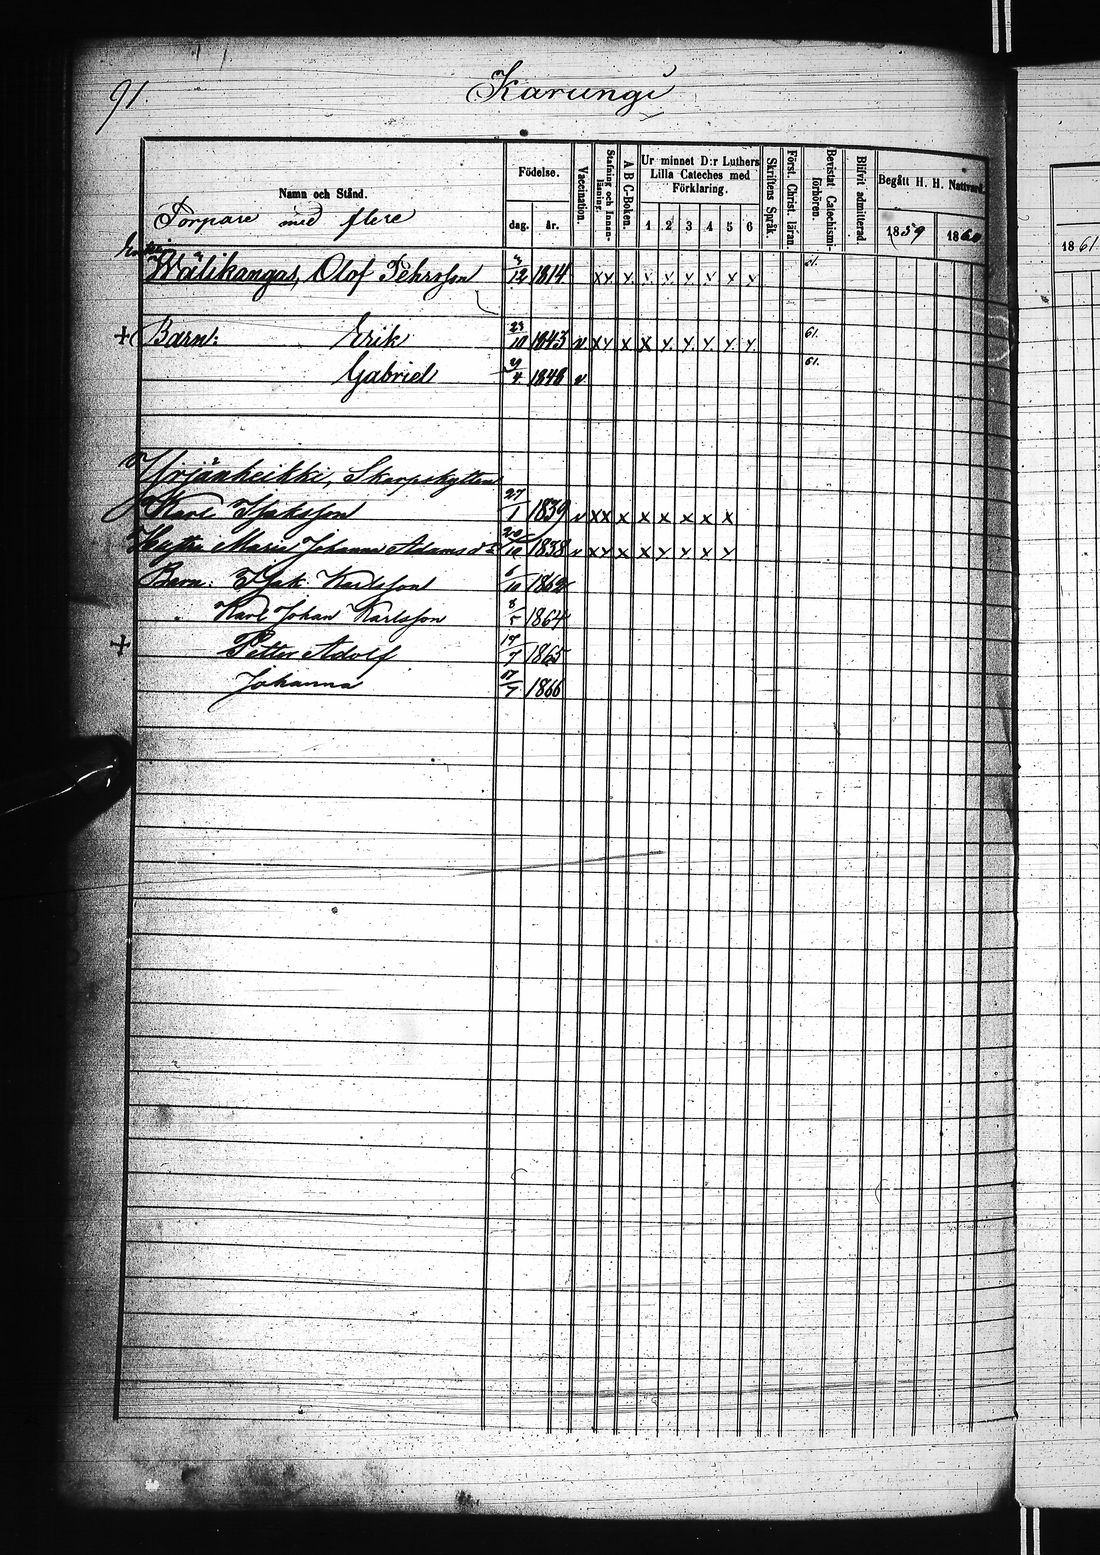 91.
Karungi
Namn och Stånd.
Födelse.
dag.
år.
Vaccination.
Stafning och Innanläsning.
A B C-Boken.
Ur minnet D:r Luthers Lilla Cateches med Förklaring.
1 2 3 4 5 6
Skriftens Språk.
Först. Christ. läran.
Bevistat Catechismiförhören.
Blifvit admitterad.
Begått H. H. Nattvard.
1859 1860
1861
Torpare med flere
Enkl.
Wälikangas, Olof Pehrsson 12 1814 x y y y y y y y y
+ Barn: Erik 23/10 1843 v x y x x y y y y y 61.
Gabriel 4 1848 v 61.
Yrjänheikki, Skarpskytten
Karl Isaksson 27/1 1839 v x x x x x x x x
Hustru Maria Johanna Adamsdr 20/10 1838 v x y x x y y x y
Barn: Isak Karlsson 6/10 1862
Karl Johan Karlsson 8/5 1864
+ Petter Adolf 19/7 1865
Johanna 17/7 1866